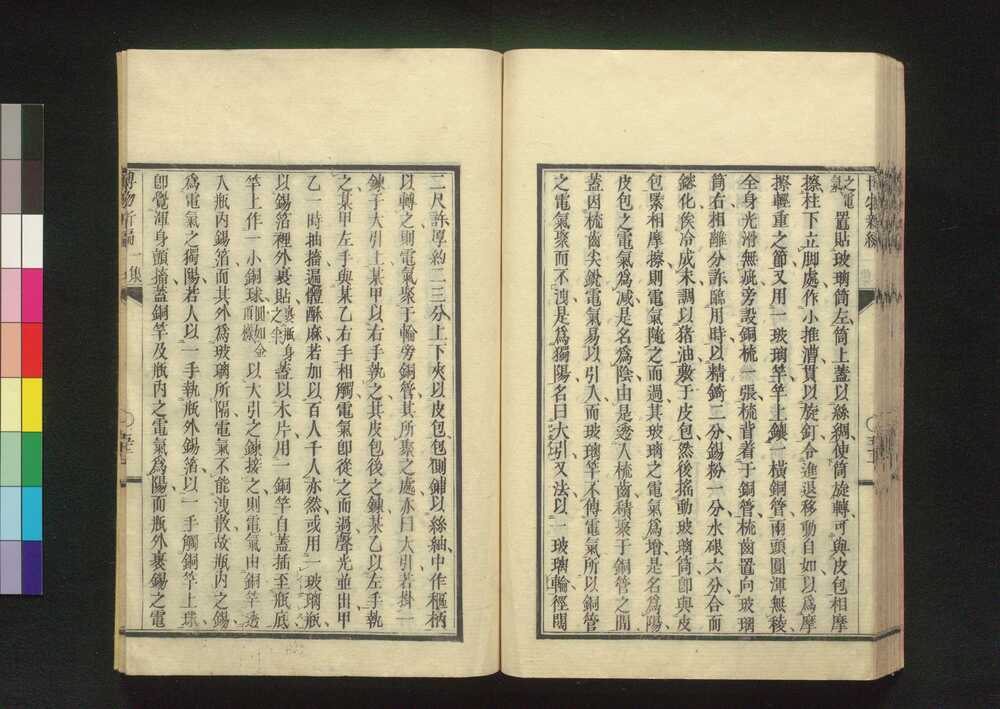 之電氣置貼玻璃筒左筒上蓋以絲綢使筒旋轉可與皮包相摩
擦柱下立脚處作小推漕貫以旋釘令進退移動自如以爲摩
擦輕重之節又用一玻璃竿竿上鑲一橫銅管兩頭圓渾無稜
全身光滑無疵旁設銅梳一張梳背着于銅管梳齒置向玻璃
筒右相離分許臨用時以精錡二分錫粉一分水硍六分合而
鎔化俟冷成末調以猪油敷于皮包然後搖動玻璃筒卽與皮
包緊相摩擦則電氣隨之而過其玻璃之電氣爲增是名爲陽
皮包之電氣爲减是名爲陰由是透入梳齒積聚于銅管之間
蓋因梳齒尖銳電氣易以引入而玻璃竿不傳電氣所以銅管
之電氣聚而不洩是爲獨陽名曰大引又法以一玻璃輪徑闊
二尺許厚約二三分上下夾以皮包包側鋪以絲紬中作樞柄
以轉之則電氣聚于輪旁銅管其所聚之處亦曰大引若掛一
鍊子大引上某甲以右手執之其皮包後之鍊某乙以左手執
之某甲左手與某乙右手相觸電氣卽從之而過聲光並出甲
乙一時抽搐遍體酥麻若加以百人千人亦然或用一玻璃瓶
以錫箔裡外裹貼裹瓶身之半蓋以木片用一銅竿自蓋插至瓶底
竿上作一小銅球圓如金頂樣以大引之鍊接之則電氣由銅竿透
入瓶內錫箔而其外爲玻璃所隔電氣不能洩散故瓶內之錫
爲電氣之獨陽若人以一手執瓶外錫箔以一手觸銅竿上球
卽覺渾身顫搐蓋銅竿及瓶內之電氣爲陽而瓶外裹錫之電
博物新編
一集